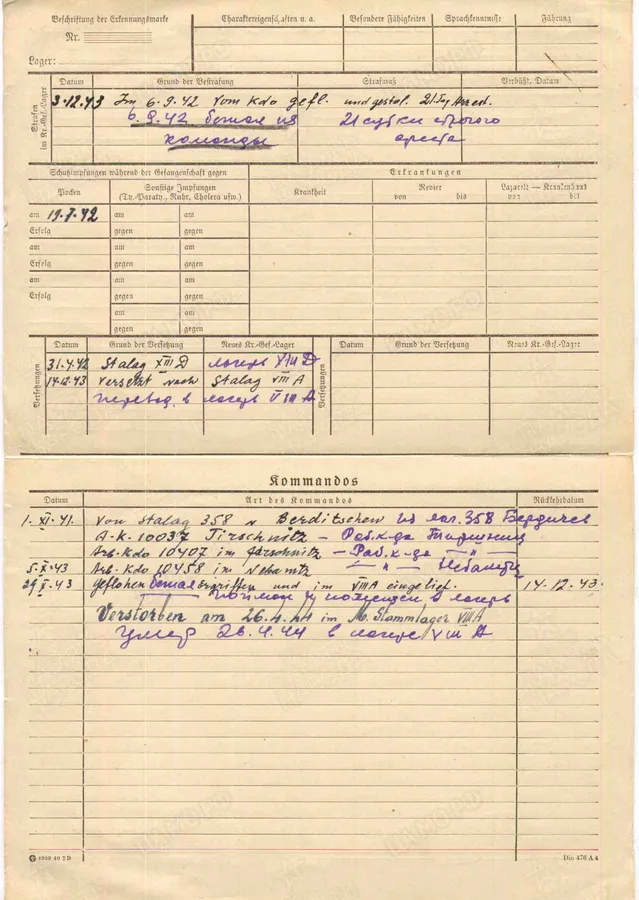 Beschriftung der Erkennungsmarke
Nr.
Lager:
Charaktereigenschaften u. a.
Besondere Fähigkeiten
Sprachkenntnisse:
Führung
Strafen im Kr.-Gef.-Lager
Datum
Grund der Bestrafung
Strafmaß
Verbüßt, Datum
3.12.43 Im 6.9.42 vom Kdo gefl. und gestol. 21 Tag Arrest.
6.9.42 бежал из 21 сутки строгого
команды ареста
Schutzimpfungen während der Gefangenschaft gegen
Erkrankungen
Pocken
Sonstige Impfungen
(Ty.-Paraty., Ruhr, Cholera usw.)
Krankheit
Revier
von bis
Lazarett — Krankenhaus
von bis
am 19.7.42 am am
Erfolg gegen gegen
am am am
Erfolg gegen gegen
am am am
Erfolg gegen gegen
am am
gegen gegen
Versetzungen
Datum
Grund der Versetzung
Neues Kr.-Gef.-Lager
Versetzungen
Datum
Grund der Versetzung
Neues Kr.-Gef.-Lager
31.4.42 Stalag XIII D лагерь XIII D
14.12.43 Versetzt nach Stalag VIII A
перевод. в лагерь VIII A
Kommandos
Datum
Art des Kommandos
Rückkehrdatum
1. XI. 41. Von Stalag 358 Berditschew из лаг. 358 Бердичев
A.-K. 10037 Tirschnitz — Раб. к-да Тиршниц
Arb. Kdo 10407 im — Раб. к-да — " —
5.X.43 Arb. Kdo 10458 im — " —
29.X.43 Geflohen бежал ergriffen und im VIII A eingelief. 14.12.43.
пойман и помещен в лагерь
Verstorben am 26.4.44 im M. Stammlager VIII A
Умер 26.4.44 в лагере VIII A
Din 476 A 4